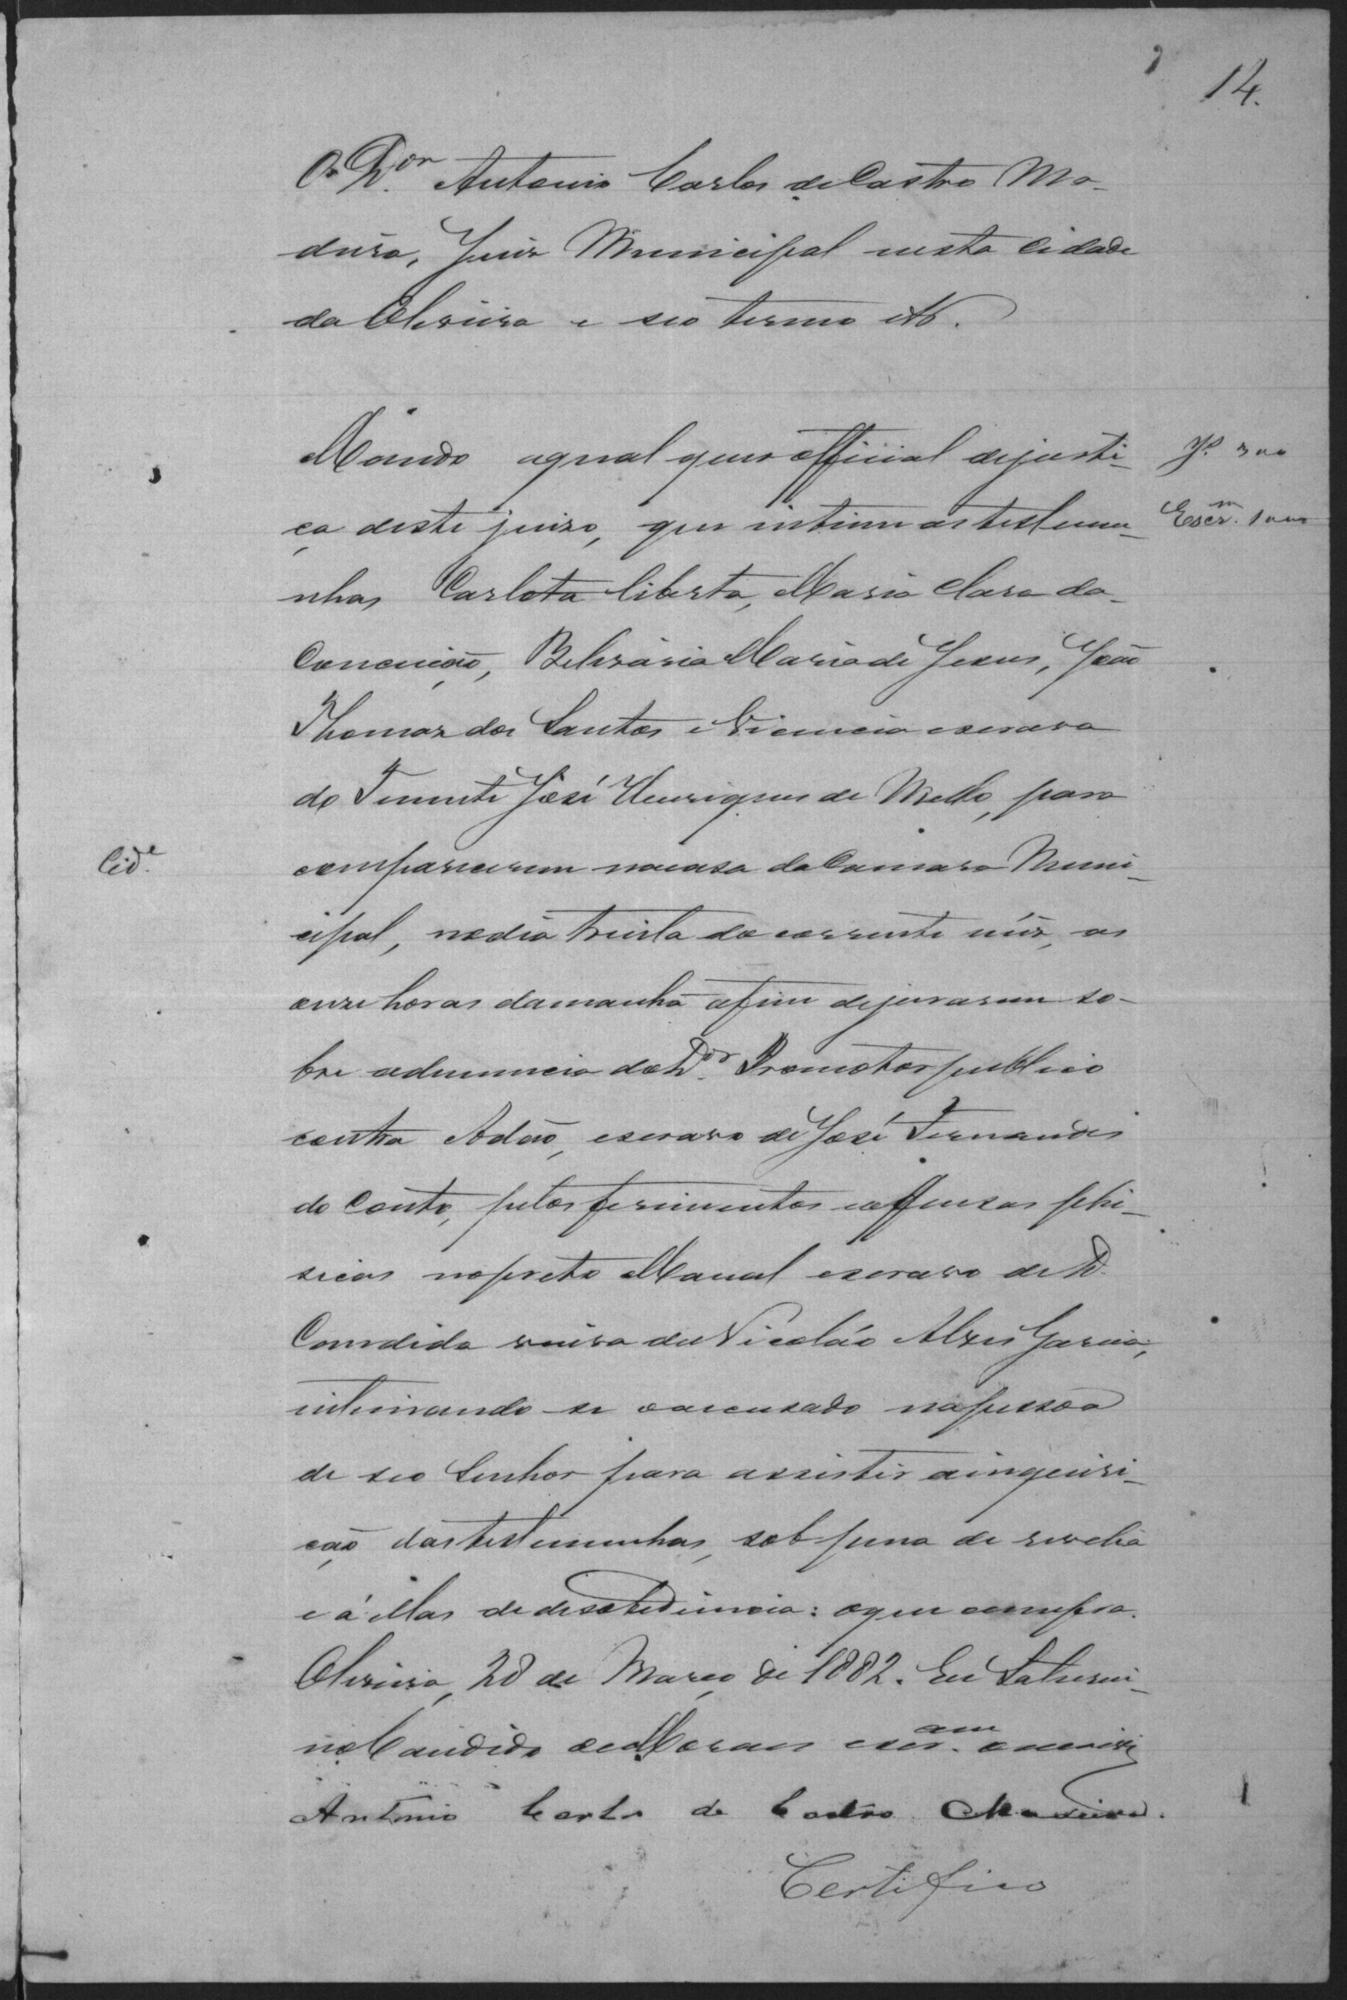 14.
O Dr. Antonio Carlos de Castro Ma-
dura, Juiz Municipal nesta Cidade
da Oliveira e seo termo etc.
Mando aqual quer official dejusti-
ça deste juizo, que intime as testemu-
nhas Carlota liberta, Maria Clara da
Conceição, Belizaria Maria de Jesus, João
Thomaz dos Santos e Vicencia escrava
do Tenente José Henriques de Mello, para
comparecerem nacasa da Camara Muni-
cipal, nodia trinta do corrente mêz, as
onze horas damanhã afim dejurarem so-
bre adenuncia do Dr. Promotor publico
contra Adão, escravo de José Fernandes
do Couto, pelos ferimentos eoffensas phi-
sicas nopreto Manoel escravo de D.
Candida viuva de Nicoláo Alves Garcia,
intimando se oaccusado napessoa
de seo Senhor para assistir ainquiri-
ção dastestemunhas, sob pena de revelia
e á ellas de desobediencia: oque cumpra.
Oliveira, 28 de Março de 1882. Eu Saturni-
no Candido de Moraes escram. o escrevi
Antonio Carlos de Castro Madeira.
Certifico
Cide.
Jo. 300
Escrm. 1000